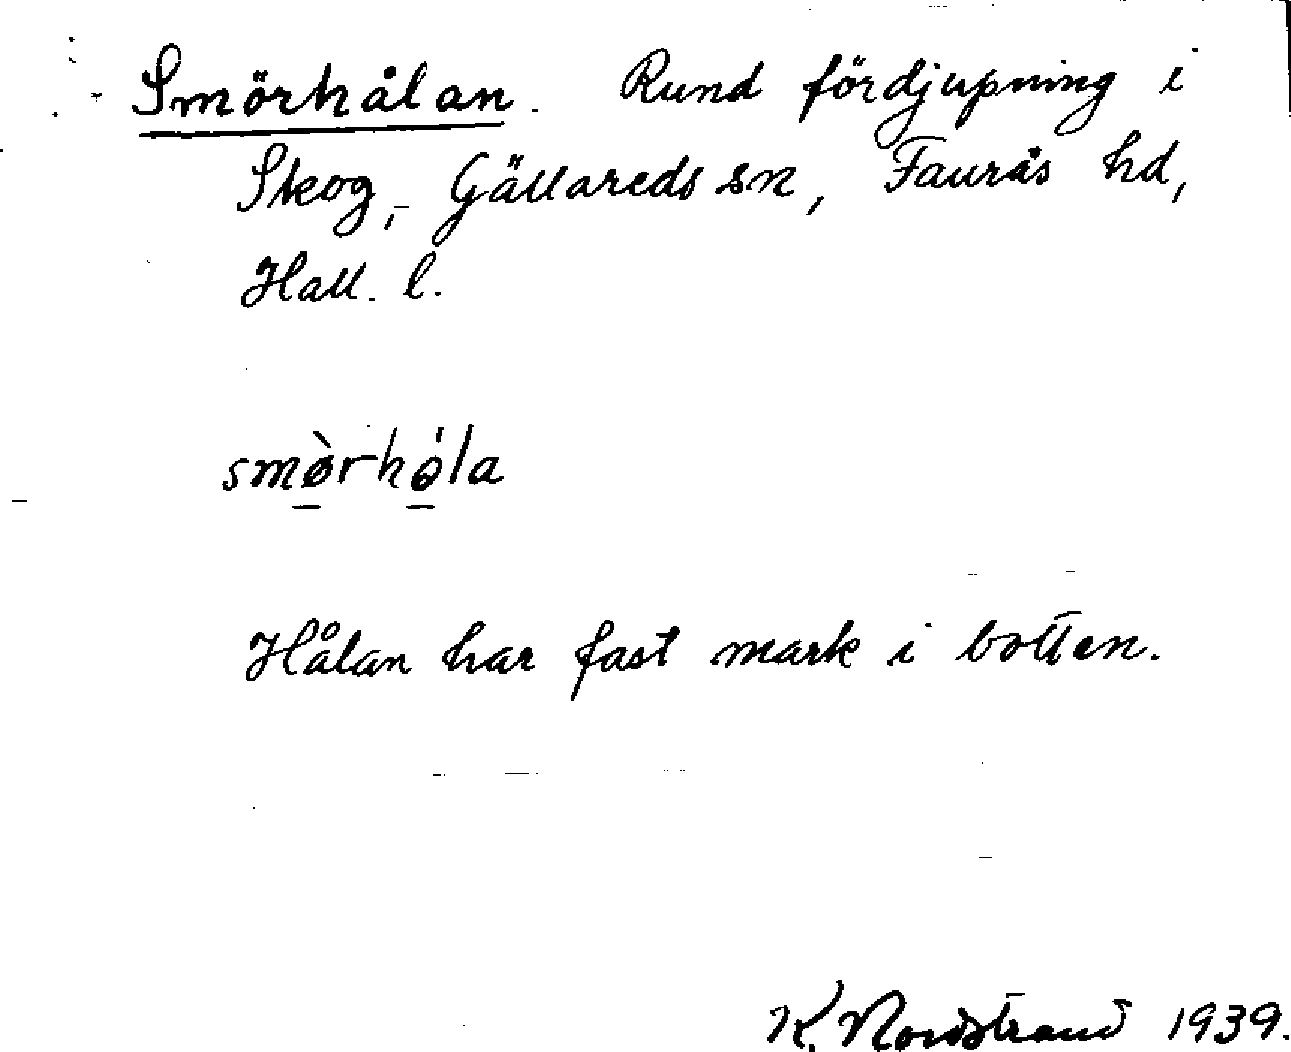 Smörhålan. Rund fördjupning i
Skog, Gällareds sn, Faurås hd,
Hall. l.
smø̀rhǿla
Hålan har fast mark i botten.
K. Nordstrand 1939.